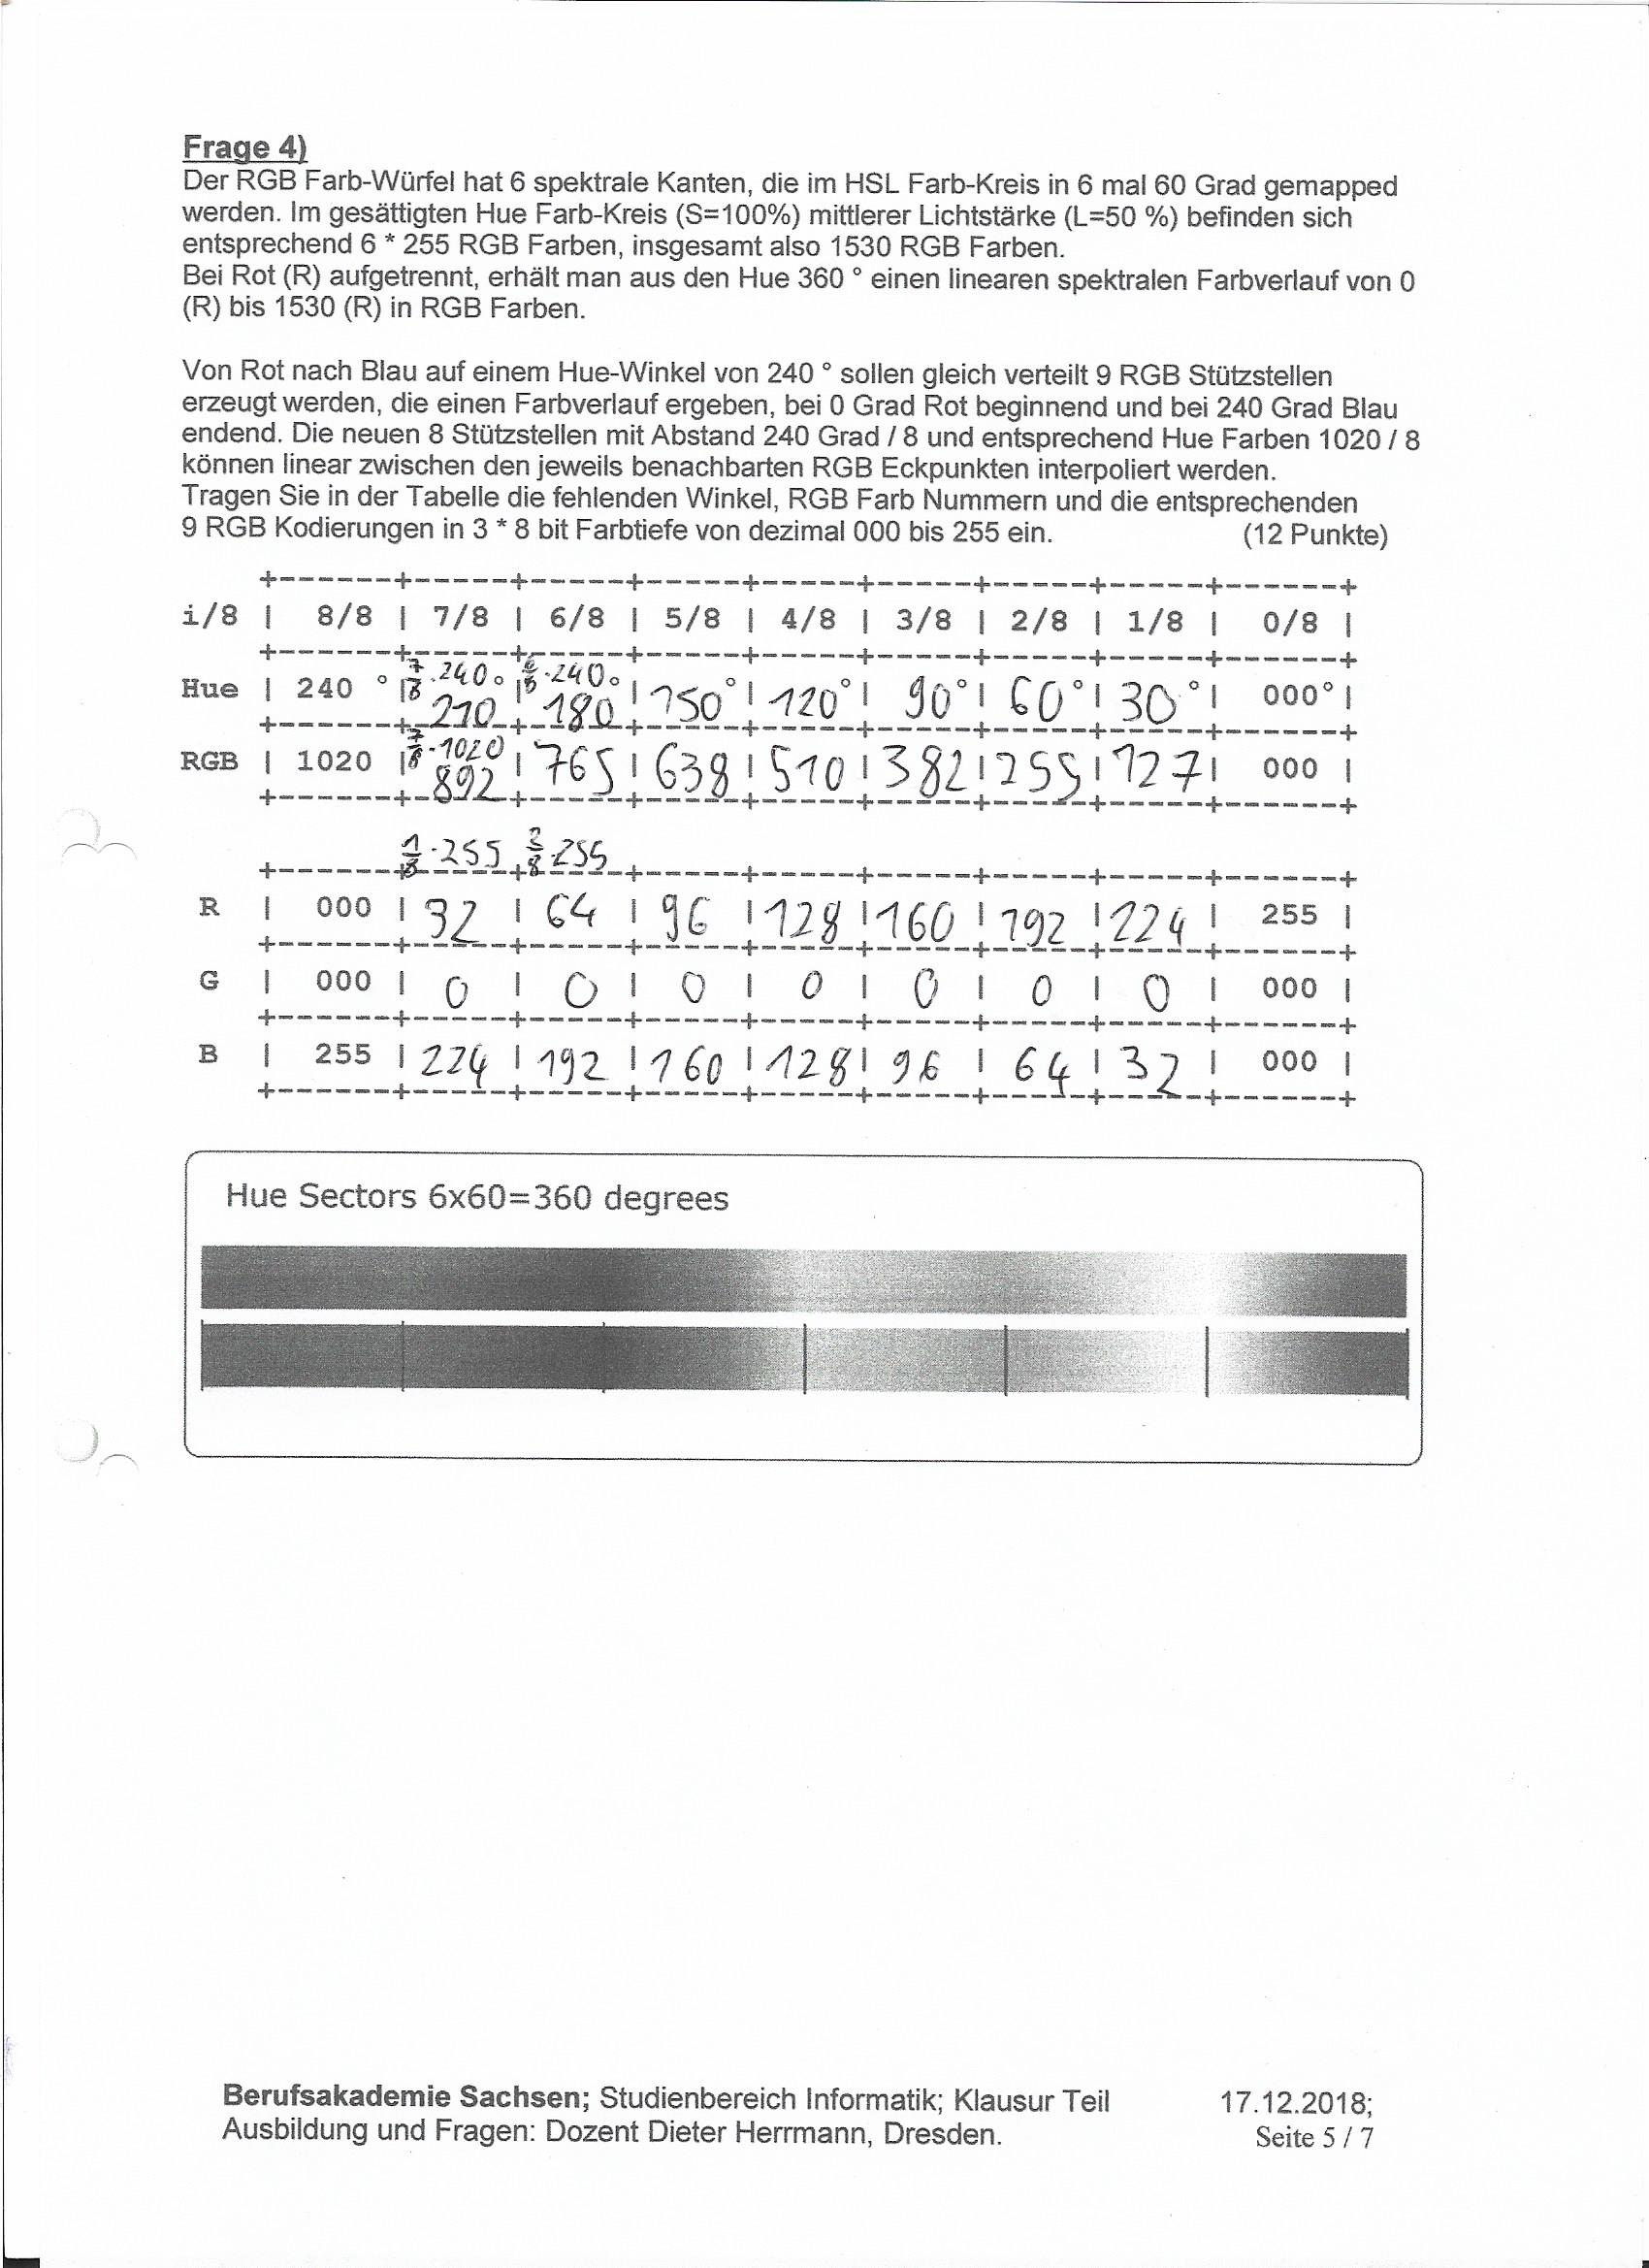 Frage 4)
Der RGB Farb-Würfel hat 6 spektrale Kanten, die im HSL Farb-Kreis in 6 mal 60 Grad gemapped
werden. Im gesättigten Hue Farb-Kreis (S=100%) mittlerer Lichtstärke (L=50 %) befinden sich
entsprechend 6 * 255 RGB Farben, insgesamt also 1530 RGB Farben.
Bei Rot (R) aufgetrennt, erhält man aus den Hue 360 ° einen linearen spektralen Farbverlauf von 0
(R) bis 1530 (R) in RGB Farben.
Von Rot nach Blau auf einem Hue-Winkel von 240 ° sollen gleich verteilt 9 RGB Stützstellen
erzeugt werden, die einen Farbverlauf ergeben, bei 0 Grad Rot beginnend und bei 240 Grad Blau
endend. Die neuen 8 Stützstellen mit Abstand 240 Grad / 8 und entsprechend Hue Farben 1020 / 8
können linear zwischen den jeweils benachbarten RGB Eckpunkten interpoliert werden.
Tragen Sie in der Tabelle die fehlenden Winkel, RGB Farb Nummern und die entsprechenden
9 RGB Kodierungen in 3 * 8 bit Farbtiefe von dezimal 000 bis 255 ein. (12 Punkte)
i/8 | 8/8 | 7/8 | 6/8 | 5/8 | 4/8 | 3/8 | 2/8 | 1/8 | 0/8 |
7/8 · 240° 6/8 · 240°
Hue | 240 ° | 210 | 180 | 150° | 120° | 90° | 60° | 30° | 000° |
7/8 · 1020
RGB | 1020 | 892 | 765 | 638 | 510 | 382 | 255 | 127 | 000 |
1/8 · 255 2/8 · 255
R | 000 | 32 | 64 | 96 | 128 | 160 | 192 | 224 | 255 |
G | 000 | 0 | 0 | 0 | 0 | 0 | 0 | 0 | 000 |
B | 255 | 224 | 192 | 160 | 128 | 96 | 64 | 32 | 000 |
Hue Sectors 6x60=360 degrees
Berufsakademie Sachsen; Studienbereich Informatik; Klausur Teil 17.12.2018;
Ausbildung und Fragen: Dozent Dieter Herrmann, Dresden. Seite 5 / 7